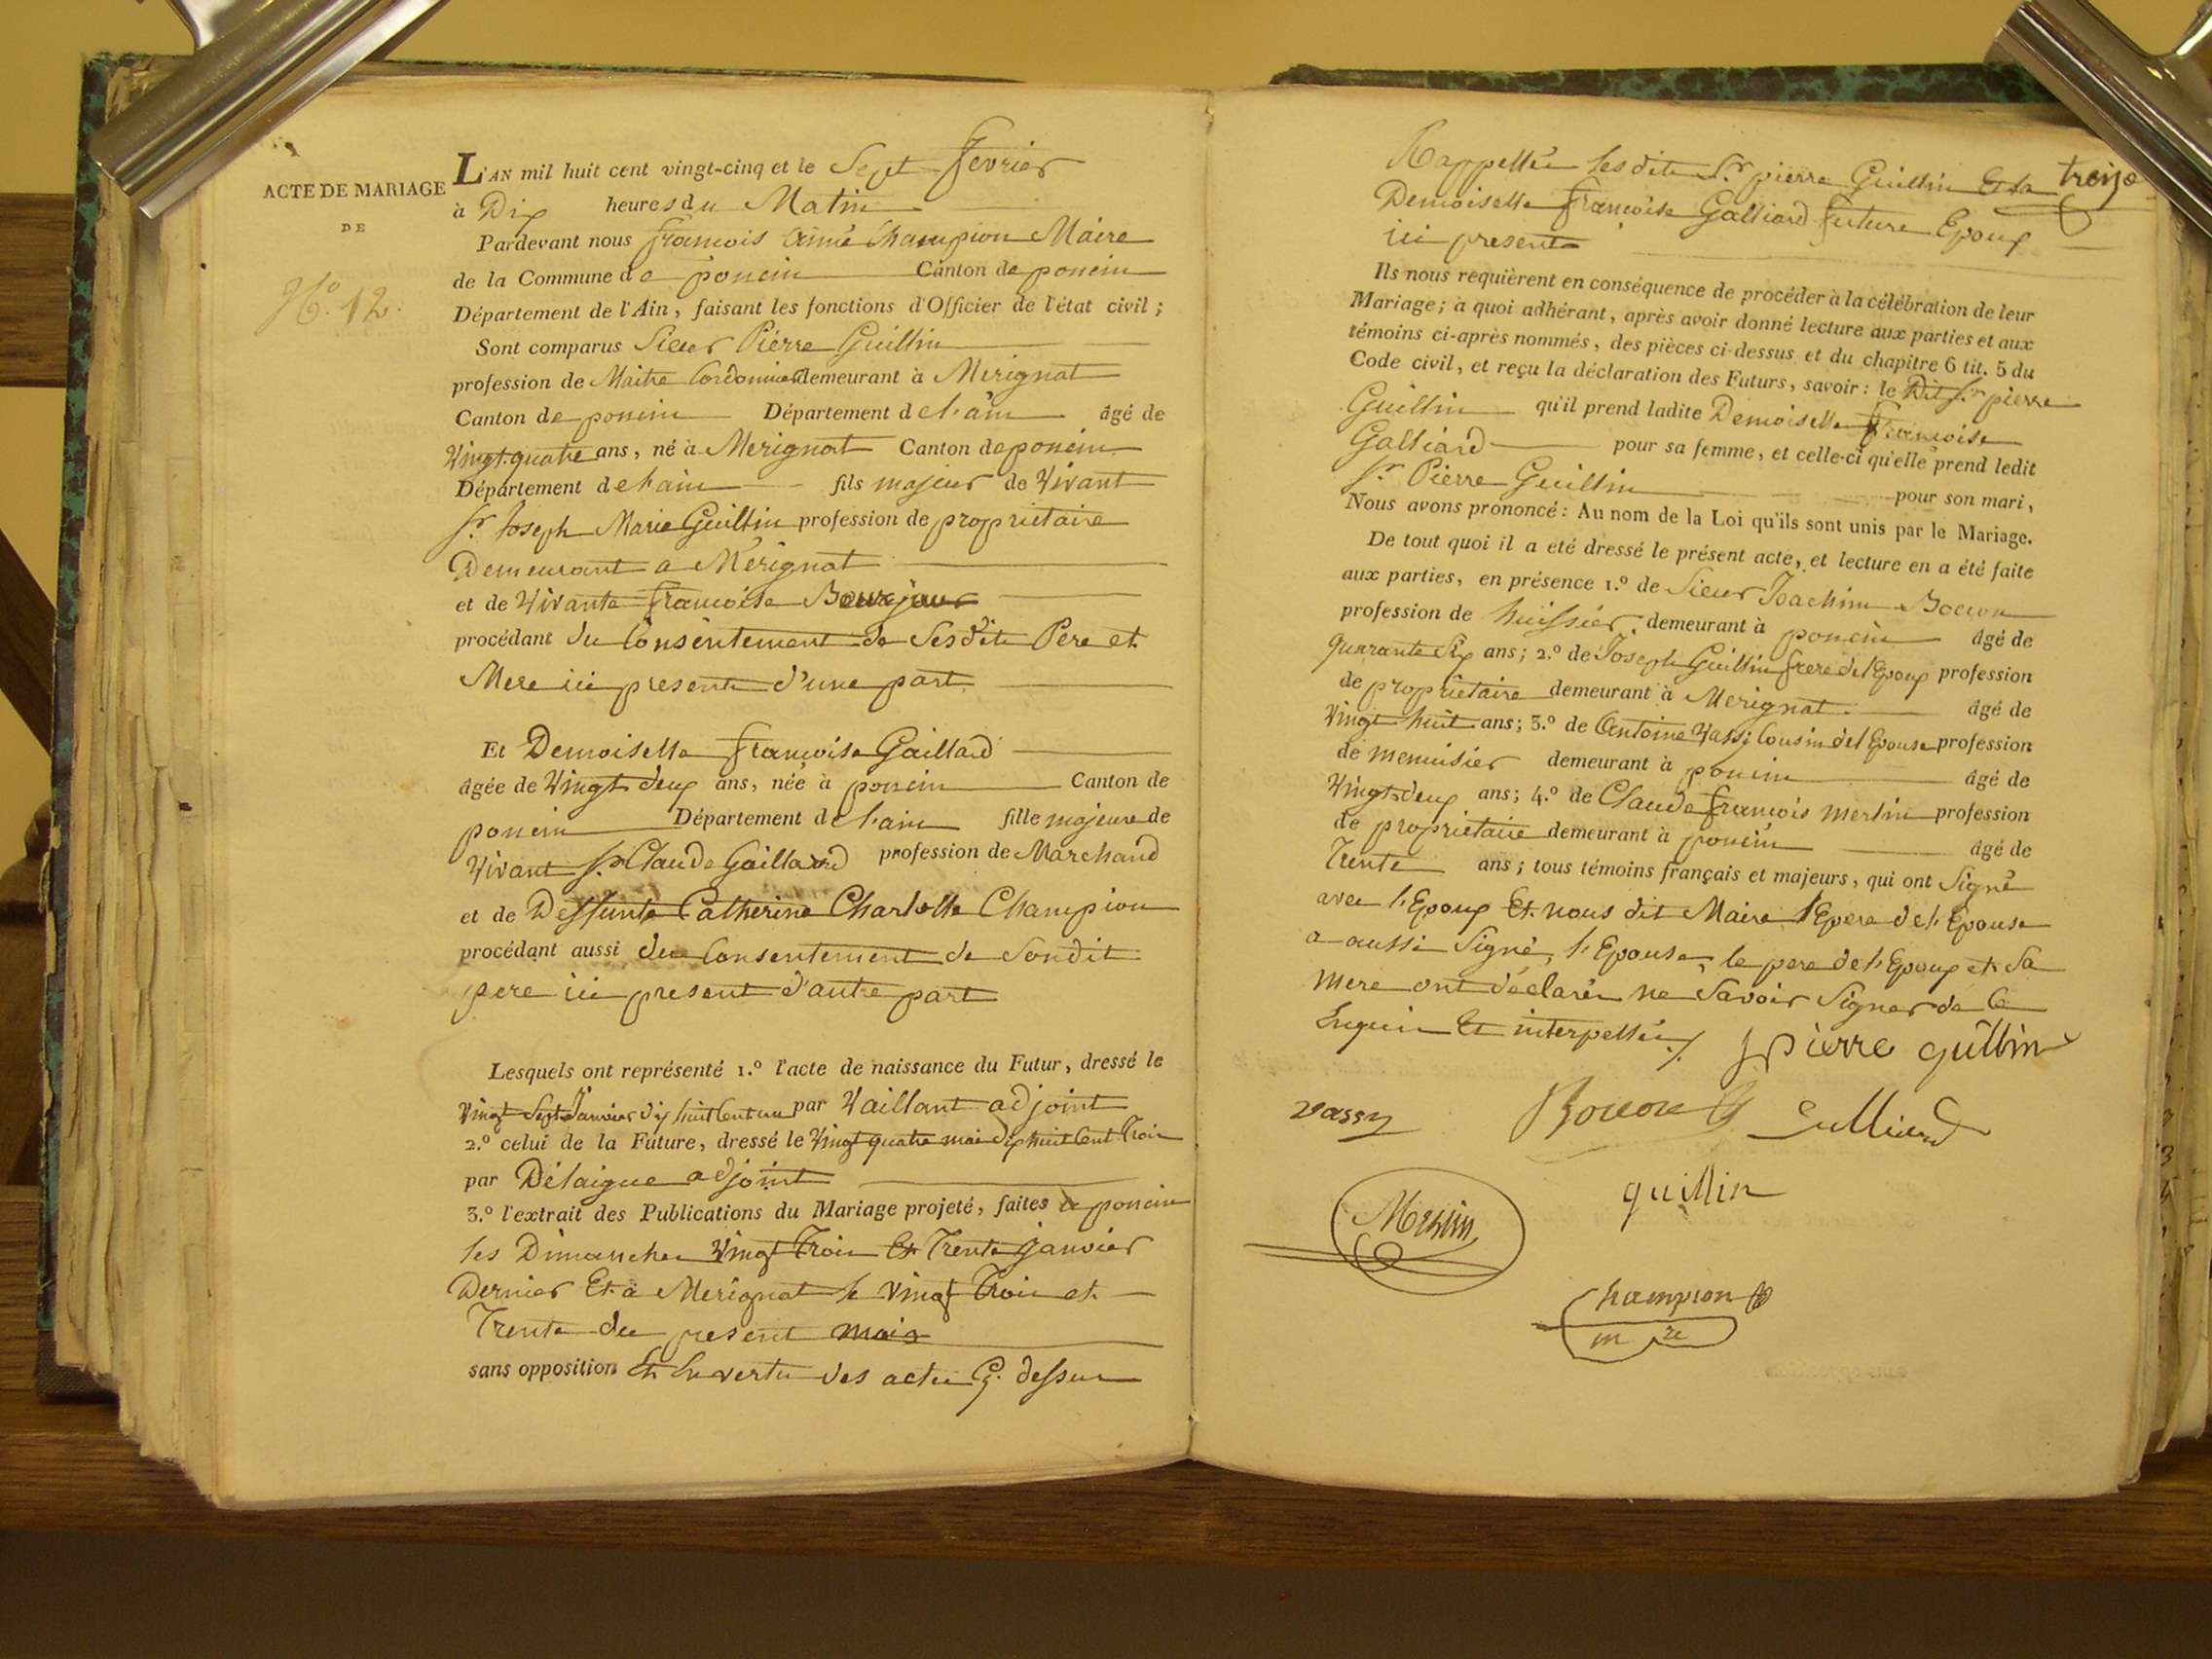 ACTE DE MARIAGE
DE
N.o 12.
L'AN mil huit cent vingt-cinq et le Sept fevrier
à Dix heures du Matin
Pardevant nous françois aimé Champion Maire
de la Commune de poncin Canton de poncin
Département de l'Ain, faisant les fonctions d'Officier de l'état civil ;
Sont comparus Sieur Pierre Guillin
profession de Maitre Cordonnier demeurant à Mérignat
Canton de poncin Département de l'ain âgé de
Vingt quatre ans, né à Merignat Canton de poncin
Département de l'ain fils majeur de Vivant
Sr. Joseph Marie Guillin profession de propriétaire
Demeurant a Mérignat
et de Vivante françoise
procédant du Consentement de Sesdits Pere et
Mere ici presents d'une part
Et Demoiselle françoise Gaillard
âgée de Vingt deux ans, née à poncin Canton de
poncin Département de l'ain fille majeure de
Vivant Sr. Claude Gaillard profession de Marchand
et de Deffunte Catherine Charlotte Champion
procédant aussi du Consentement de Sondit
pere ici present d'autre part
Lesquels ont représenté 1.º l'acte de naissance du Futur, dressé le
Vingt Sept Janvier dix huit Cent un par Vaillant adjoint
2.º celui de la Future, dressé le Vingt quatre mai dix huit Cent Trois
par Délaigue adjoint
3.º l'extrait des Publications du Mariage projeté, faites à poncin
les Dimanches Vingt Trois Et Trente janvier
Dernier Et à Merignat le vingt Trois et
Trente du present mois
sans opposition Et En vertu des actes Cy. dessus
treize
Rappellés lesdits Sr. pierre Guillin Et la
Demoiselle françoise Galliard future Epoux
ici presents
Ils nous requièrent en conséquence de procéder à la célébration de leur
Mariage; à quoi adhérant, après avoir donné lecture aux parties et aux
témoins ci-après nommés, des pièces ci-dessus et du chapitre 6 tit. 5 du
Code civil, et reçu la déclaration des Futurs, savoir : le Dit Sr. pierre
Guillin qu'il prend ladite Demoiselle françoise
Galliard pour sa femme, et celle-ci qu'elle prend ledit
Sr. Pierre Guillin pour son mari,
Nous avons prononcé : Au nom de la Loi qu'ils sont unis par le Mariage.
De tout quoi il a été dressé le présent acte, et lecture en a été faite
aux parties, en présence 1.º de Sieur Joachim Bocon
profession de huissier demeurant à poncin âgé de
quarante Six ans; 2.º de Joseph Guillin frere de l'Epoux profession
de propriétaire demeurant à Merignat âgé de
Vingt huit ans; 3.º de Antoine Vassy Cousin de l'Epouse profession
de menuisier demeurant à poncin âgé de
Vingt deux ans; 4.º de Claude françois Merlin profession
de propriétaire demeurant à poncin âgé de
Trente ans; tous témoins français et majeurs, qui ont Signé
avec l'Epoux Et nous dit Maire lepere de l'Epouse
a aussi Signé, l'Epouse, le pere de l'Epoux et Sa
mere ont déclarés ne Savoir Signer de Ce
Enquis Et interpellés
pierre guillin
vassy
Galliard
guillin
Merlin
Champion
mre